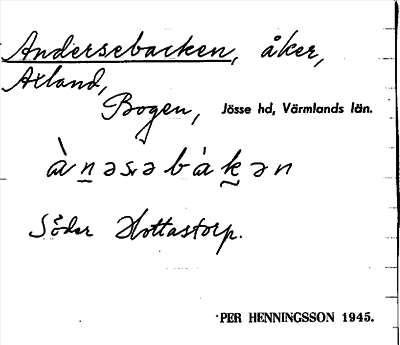 Andersebacken, åker,
Axland,
Bogen, Jösse hd, Värmlands län.
ànəsəbàkən
Söder Hottastorp.
PER HENNINGSSON 1945.